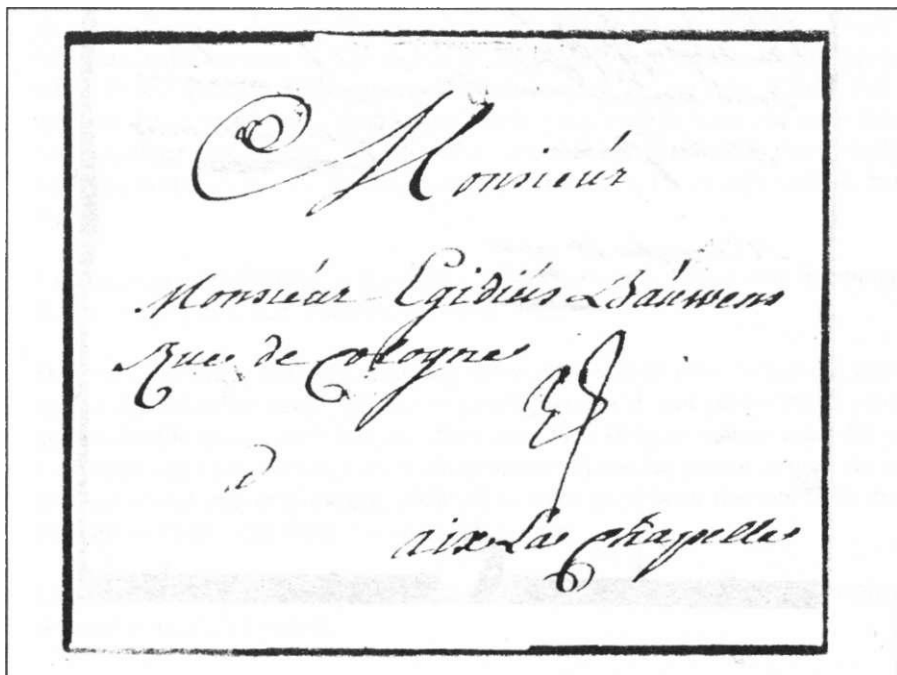 Monsieúr
Monsieúr Egidiús
Rue de Cologne
a
aix La Chapelle